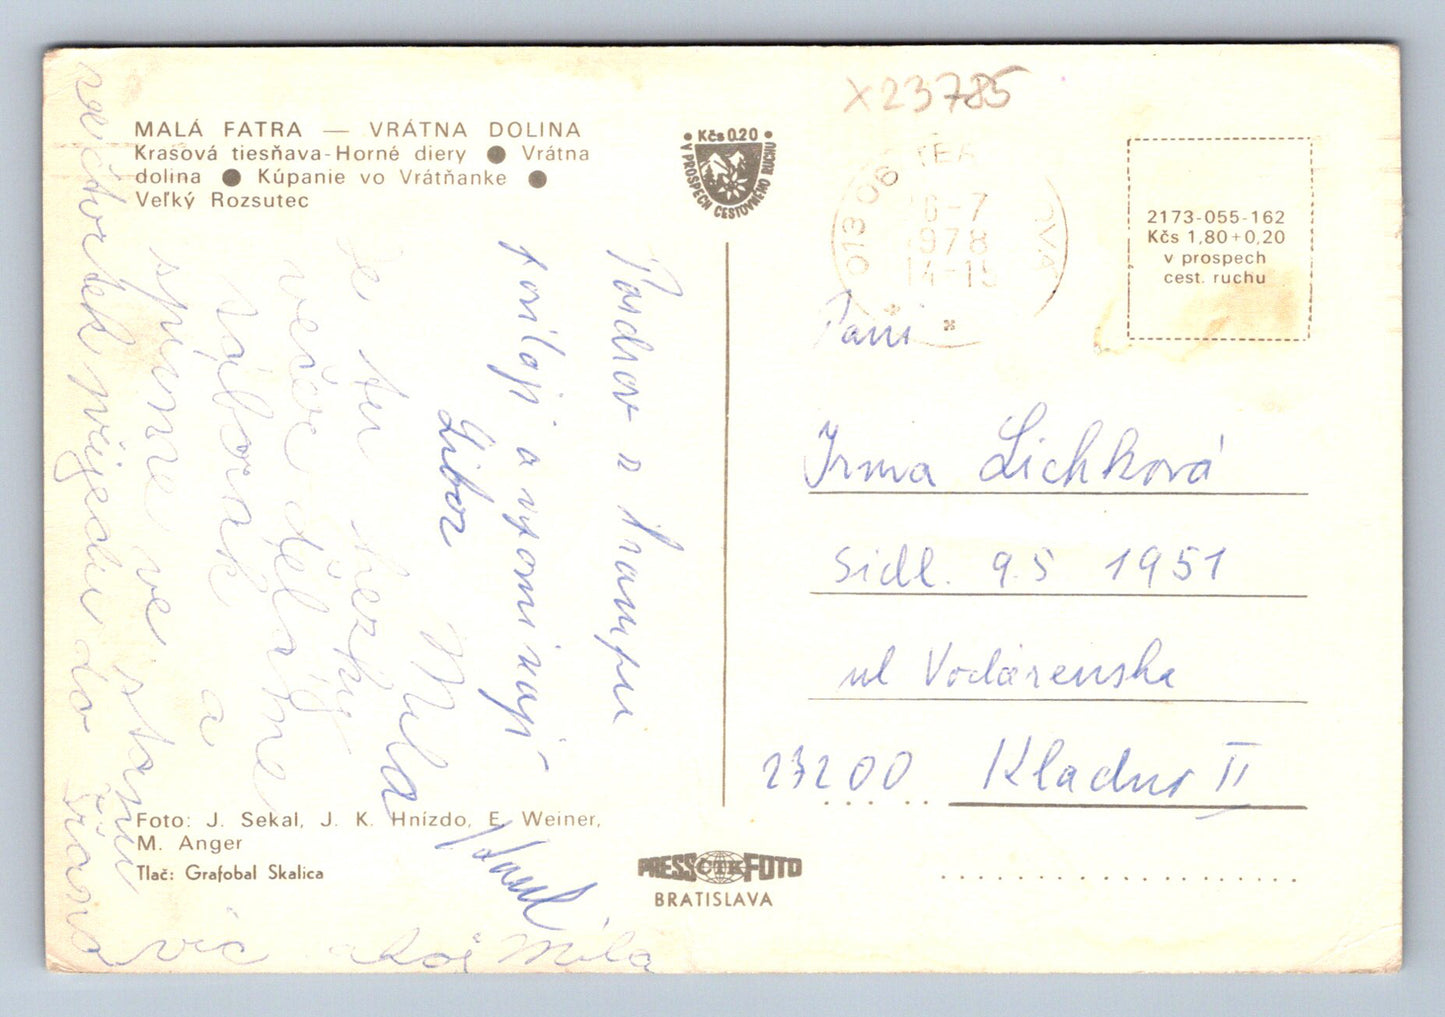 X23785
MALÁ FATRA — VRÁTNA DOLINA
Krasová tiesňava-Horné diery ● Vrátna
dolina ● Kúpanie vo Vrátňanke ●
Veľký Rozsutec
• Kčs 0.20 •
V PROSPECH CESTOVNÉHO RUCHU
013 06 TER OVÁ
6-7
1978
14-15
2173-055-162
Kčs 1,80+0,20
v prospech
cest. ruchu
Pozdrav z kempu
posílají a vzpomínají
Libor
Míla
Je tu hezky
večer děláme
táborák a
spíme ve stanu
ve čtvrtek přijedu do
víc
Míla
Paní
Irma Lichková
Sidl. 9.5 1951
ul Vodárenska
27200 Kladno II
Foto: J. Sekal, J. K. Hnízdo, E. Weiner,
M. Anger
Tlač: Grafobal Skalica
PRESS ČTK FOTO
BRATISLAVA